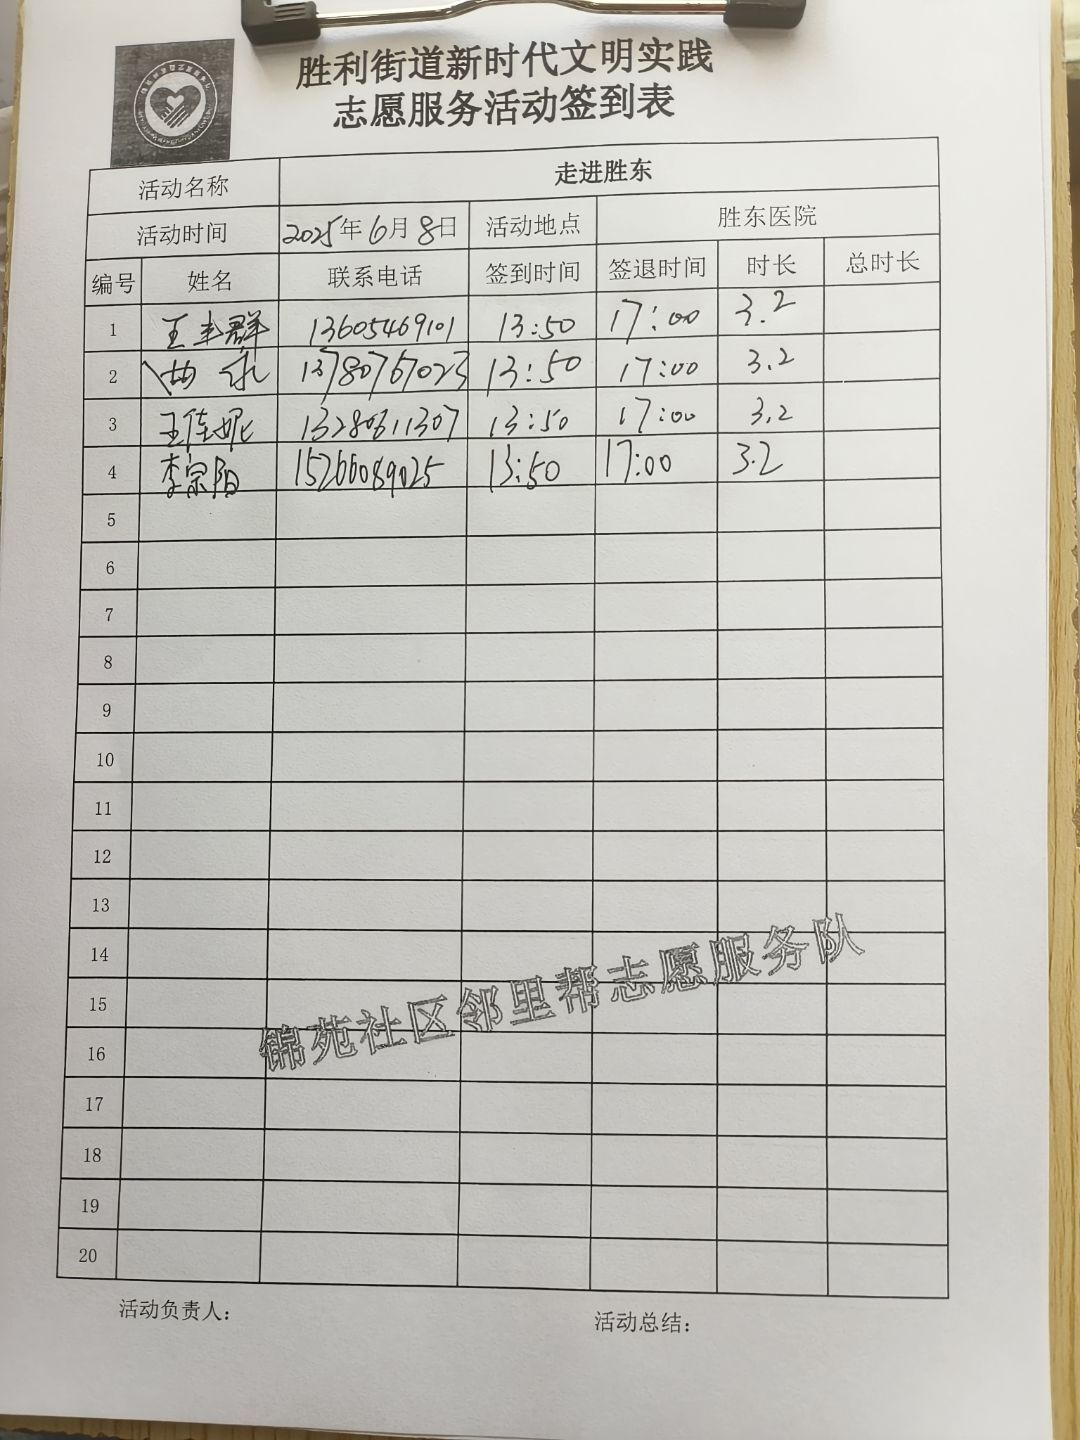 胜利街道新时代文明实践
志愿服务活动签到表
活动名称 走进胜东
活动时间 2025年6月8日 活动地点 胜东医院
编号 姓名 联系电话 签到时间 签退时间 时长 总时长
1 王丰群 13605469101 13:50 17:00 3.2
2 13780767023 13:50 17:00 3.2
3 王佳妮 13280611307 13:50 17:00 3.2
4 李宗阳 15266089025 13:50 17:00 3.2
5
6
7
8
9
10
11
12
13
14
15
16
17
18
19
20
锦苑社区邻里帮志愿服务队
活动负责人： 活动总结：